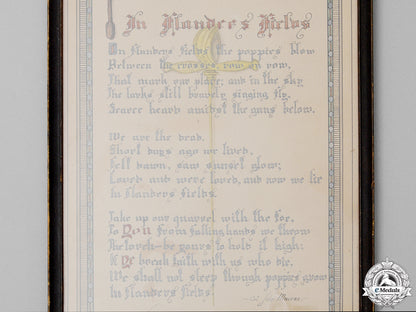 In Flanders Fields
In Flanders fields the poppies blow
Between the crosses, row on row,
That mark our place; and in the sky
The larks still bravely singing fly,
Scarce heard amidst the guns below.
We are the dead.
Short days ago we lived,
Felt dawn, saw sunset glow;
Loved and were loved, and now we lie
In Flanders Fields.
Take up our quarrel with the foe,
To You from failing hands we throw
The torch—be yours to hold it high:
If Ye break faith with us who die,
We shall not sleep though poppies grow
In Flanders Fields.
eMedals